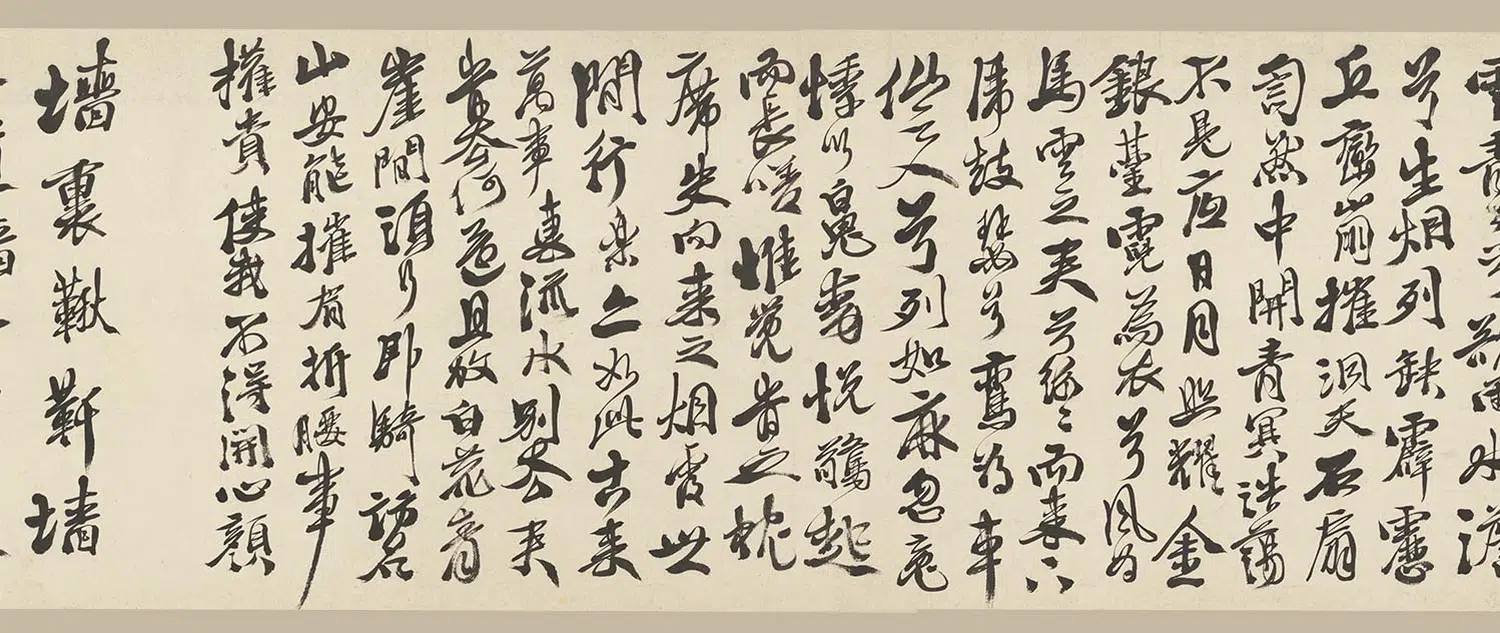 雲青青兮欲雨水澹
兮生烟列缺霹靂
丘巒崩摧洞天石扇
訇然中開青冥浩蕩
不見底日月照耀金
銀臺霓為衣兮風為
馬雲之君兮紛〻而来下
虎鼓瑟兮鸞為車
仙之人兮列如麻忽魂
悸以魄動怳驚起
而長嗟惟覺昔之枕
席失向来之烟霞世
間行樂亦如此古来
萬事東流水別君去
何還且放白鹿青
崖間須行即騎訪名
山安能摧眉折腰事
權貴使我不得開心顏
墻裏鞦韆墻